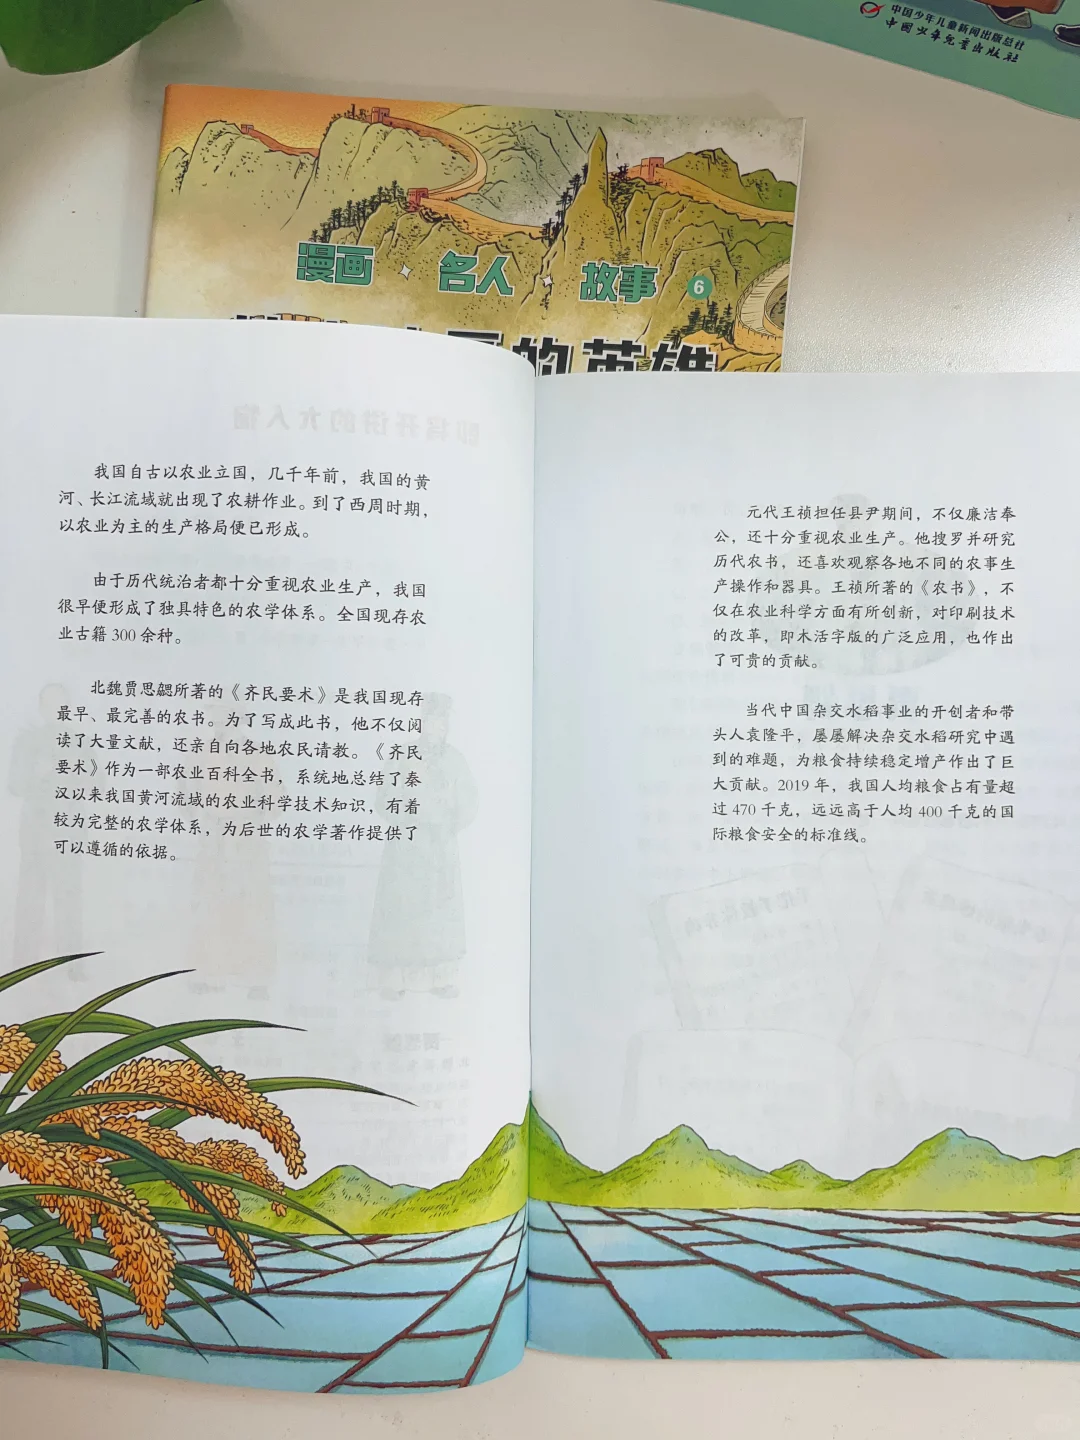 中国少年儿童新闻出版总社
中国少年儿童出版社
漫画 名人 故事 6
的英雄
我国自古以农业立国，几千年前，我国的黄
河、长江流域就出现了农耕作业。到了西周时期，
以农业为主的生产格局便已形成。
由于历代统治者都十分重视农业生产，我国
很早便形成了独具特色的农学体系。全国现存农
业古籍 300 余种。
北魏贾思勰所著的《齐民要术》是我国现存
最早、最完善的农书。为了写成此书，他不仅阅
读了大量文献，还亲自向各地农民请教。《齐民
要术》作为一部农业百科全书，系统地总结了秦
汉以来我国黄河流域的农业科学技术知识，有着
较为完整的农学体系，为后世的农学著作提供了
可以遵循的依据。
元代王祯担任县尹期间，不仅廉洁奉
公，还十分重视农业生产。他搜罗并研究
历代农书，还喜欢观察各地不同的农事生
产操作和器具。王祯所著的《农书》，不
仅在农业科学方面有所创新，对印刷技术
的改革，即木活字版的广泛应用，也作出
了可贵的贡献。
当代中国杂交水稻事业的开创者和带
头人袁隆平，屡屡解决杂交水稻研究中遇
到的难题，为粮食持续稳定增产作出了巨
大贡献。2019 年，我国人均粮食占有量超
过 470 千克，远远高于人均 400 千克的国
际粮食安全的标准线。